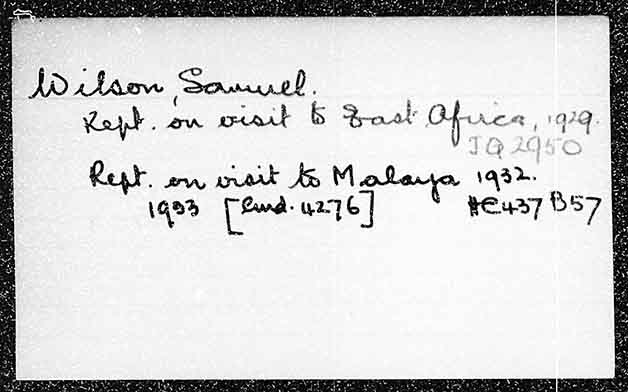 Wilson, Samuel.
Rept. on visit to East Africa, 1929.
JQ2950
Rept. on visit to Malaya 1932.
1933 [Cmd. 4276] HC437 B57